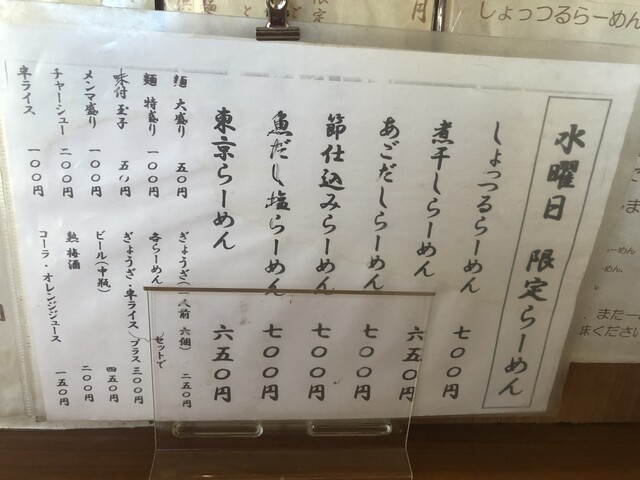 しょっつるらーめん
水曜日 限定らーめん
しょっつるらーめん 七〇〇円
煮干しらーめん 六五〇円
あごだしらーめん 七〇〇円
節仕込みらーめん 七〇〇円
魚だし塩らーめん 七〇〇円
東京らーめん 六五〇円
麺 大盛り 五〇円
麺 特盛り 一〇〇円
味付玉子 五〇円
メンマ盛り 一〇〇円
チャーシュー 二〇〇円
半ライス 一〇〇円
ぎょうざ(一人前 六個) 二五〇円
各らーめん セットで
ぎょうざ・半ライス プラス 三〇〇円
ビール(中瓶) 四五〇円
熟梅酒 二〇〇円
コーラ・オレンジジュース 一五〇円